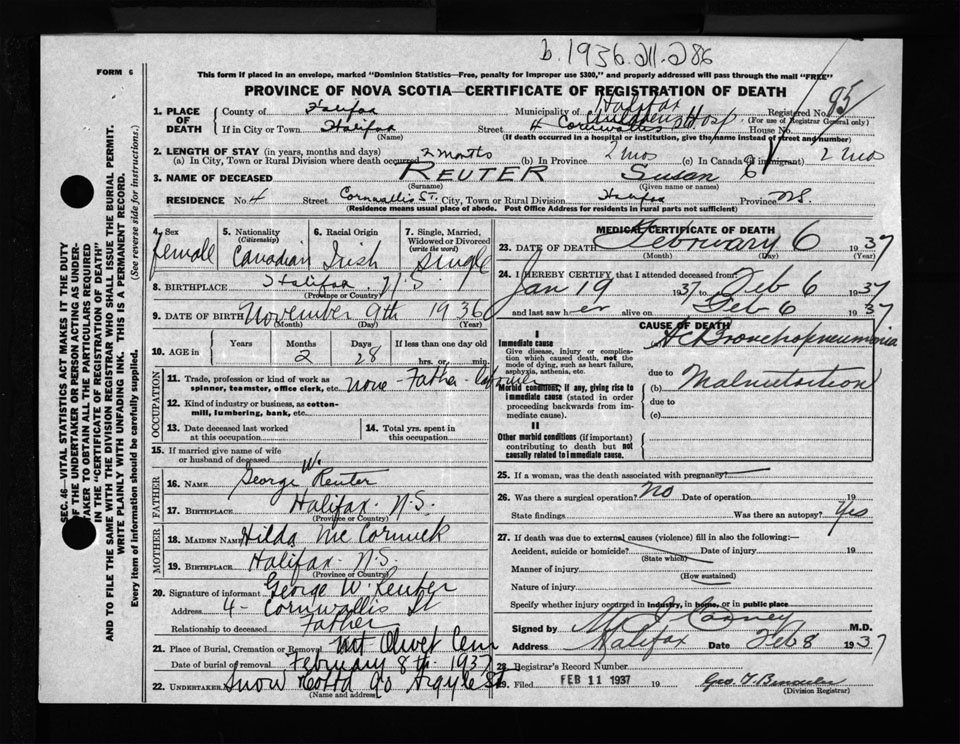 b. 1936.211.286
FORM 6
This form if placed in an envelope, marked "Dominion Statistics—Free, penalty for improper use $300," and properly addressed will pass through the mail "FREE"
PROVINCE OF NOVA SCOTIA—CERTIFICATE OF REGISTRATION OF DEATH
1. PLACE OF DEATH County of Halifax Municipality of Halifax Registered No. 95
(For use of Registrar General only)
If in City or Town Halifax (Name) Street 4 Cornwallis Childrens Hosp House No.
(If death occurred in a hospital or institution, give the name instead of street and number)
2. LENGTH OF STAY (in years, months and days)
(a) In City, Town or Rural Division where death occurred 2 months (b) In Province 2 mos (c) In Canada (if immigrant) 2 mos
3. NAME OF DECEASED REUTER Susan
(Surname) (Given name or names)
RESIDENCE No. 4 Street Cornwallis St. City, Town or Rural Division Halifax Province N.S.
(Residence means usual place of abode. Post Office Address for residents in rural parts not sufficient)
4. Sex female
5. Nationality (Citizenship) Canadian
6. Racial Origin Irish
7. Single, Married, Widowed or Divorced (write the word) Single
8. BIRTHPLACE Halifax N.S.
(Province or Country)
9. DATE OF BIRTH November 9th 1936
(Month) (Day) (Year)
10. AGE in Years Months 2 Days 28 If less than one day old hrs. or min.
OCCUPATION
11. Trade, profession or kind of work as spinner, teamster, office clerk, etc. none - Father
12. Kind of industry or business, as cotton-mill, lumbering, bank, etc.
13. Date deceased last worked at this occupation
14. Total yrs. spent in this occupation
15. If married give name of wife or husband of deceased
FATHER
16. NAME George W. Reuter
17. BIRTHPLACE Halifax. N.S.
(Province or Country)
MOTHER
18. MAIDEN NAME Hilda McCormick
19. BIRTHPLACE Halifax N.S.
(Province or Country)
20. Signature of informant George W. Reuter
Address 4 - Cornwallis St
Relationship to deceased Father
21. Place of Burial, Cremation or Removal Mt Olivet Cem
Date of burial or removal February 8th 1937
22. UNDERTAKER Snow & Co Ltd 90 Argyle St
(Name and address)
MEDICAL CERTIFICATE OF DEATH
23. DATE OF DEATH February 6 1937
(Month) (Day) (Year)
24. I HEREBY CERTIFY that I attended deceased from:
Jan 19 1937 Feb 6 1937
and last saw her alive on Feb 6 1937
CAUSE OF DEATH
I
Immediate cause
Give disease, injury or complication which caused death, not the mode of dying, such as heart failure, asphyxia, asthenia, etc.
Ac Bronchopneumonia
Morbid conditions, if any, giving rise to immediate cause (stated in order proceeding backwards from immediate cause).
due to
(b) Malnutrition
due to
(c)
II
Other morbid conditions (if important) contributing to death but not causally related to immediate cause.
25. If a woman, was the death associated with pregnancy?
26. Was there a surgical operation? No Date of operation 19
State findings Was there an autopsy? Yes
27. If death was due to external causes (violence) fill in also the following:—
Accident, suicide or homicide? Date of injury 19
(State which)
Manner of injury
(How sustained)
Nature of injury
Specify whether injury occurred in industry, in home, or in public place
Signed by M.D.
Address Halifax Date Feb 8 1937
28. Registrar's Record Number
29. Filed FEB 11 1937 19
(Division Registrar)
SEC. 46—VITAL STATISTICS ACT MAKES IT THE DUTY
OF THE UNDERTAKER OR PERSON ACTING AS UNDER-
TAKER TO OBTAIN ALL THE PARTICULARS REQUIRED
IN THE "CERTIFICATE OF REGISTRATION OF DEATH"
AND TO FILE THE SAME WITH THE DIVISION REGISTRAR WHO SHALL ISSUE THE BURIAL PERMIT.
WRITE PLAINLY WITH UNFADING INK. THIS IS A PERMANENT RECORD.
Every item of information should be carefully supplied. (See reverse side for instructions.)